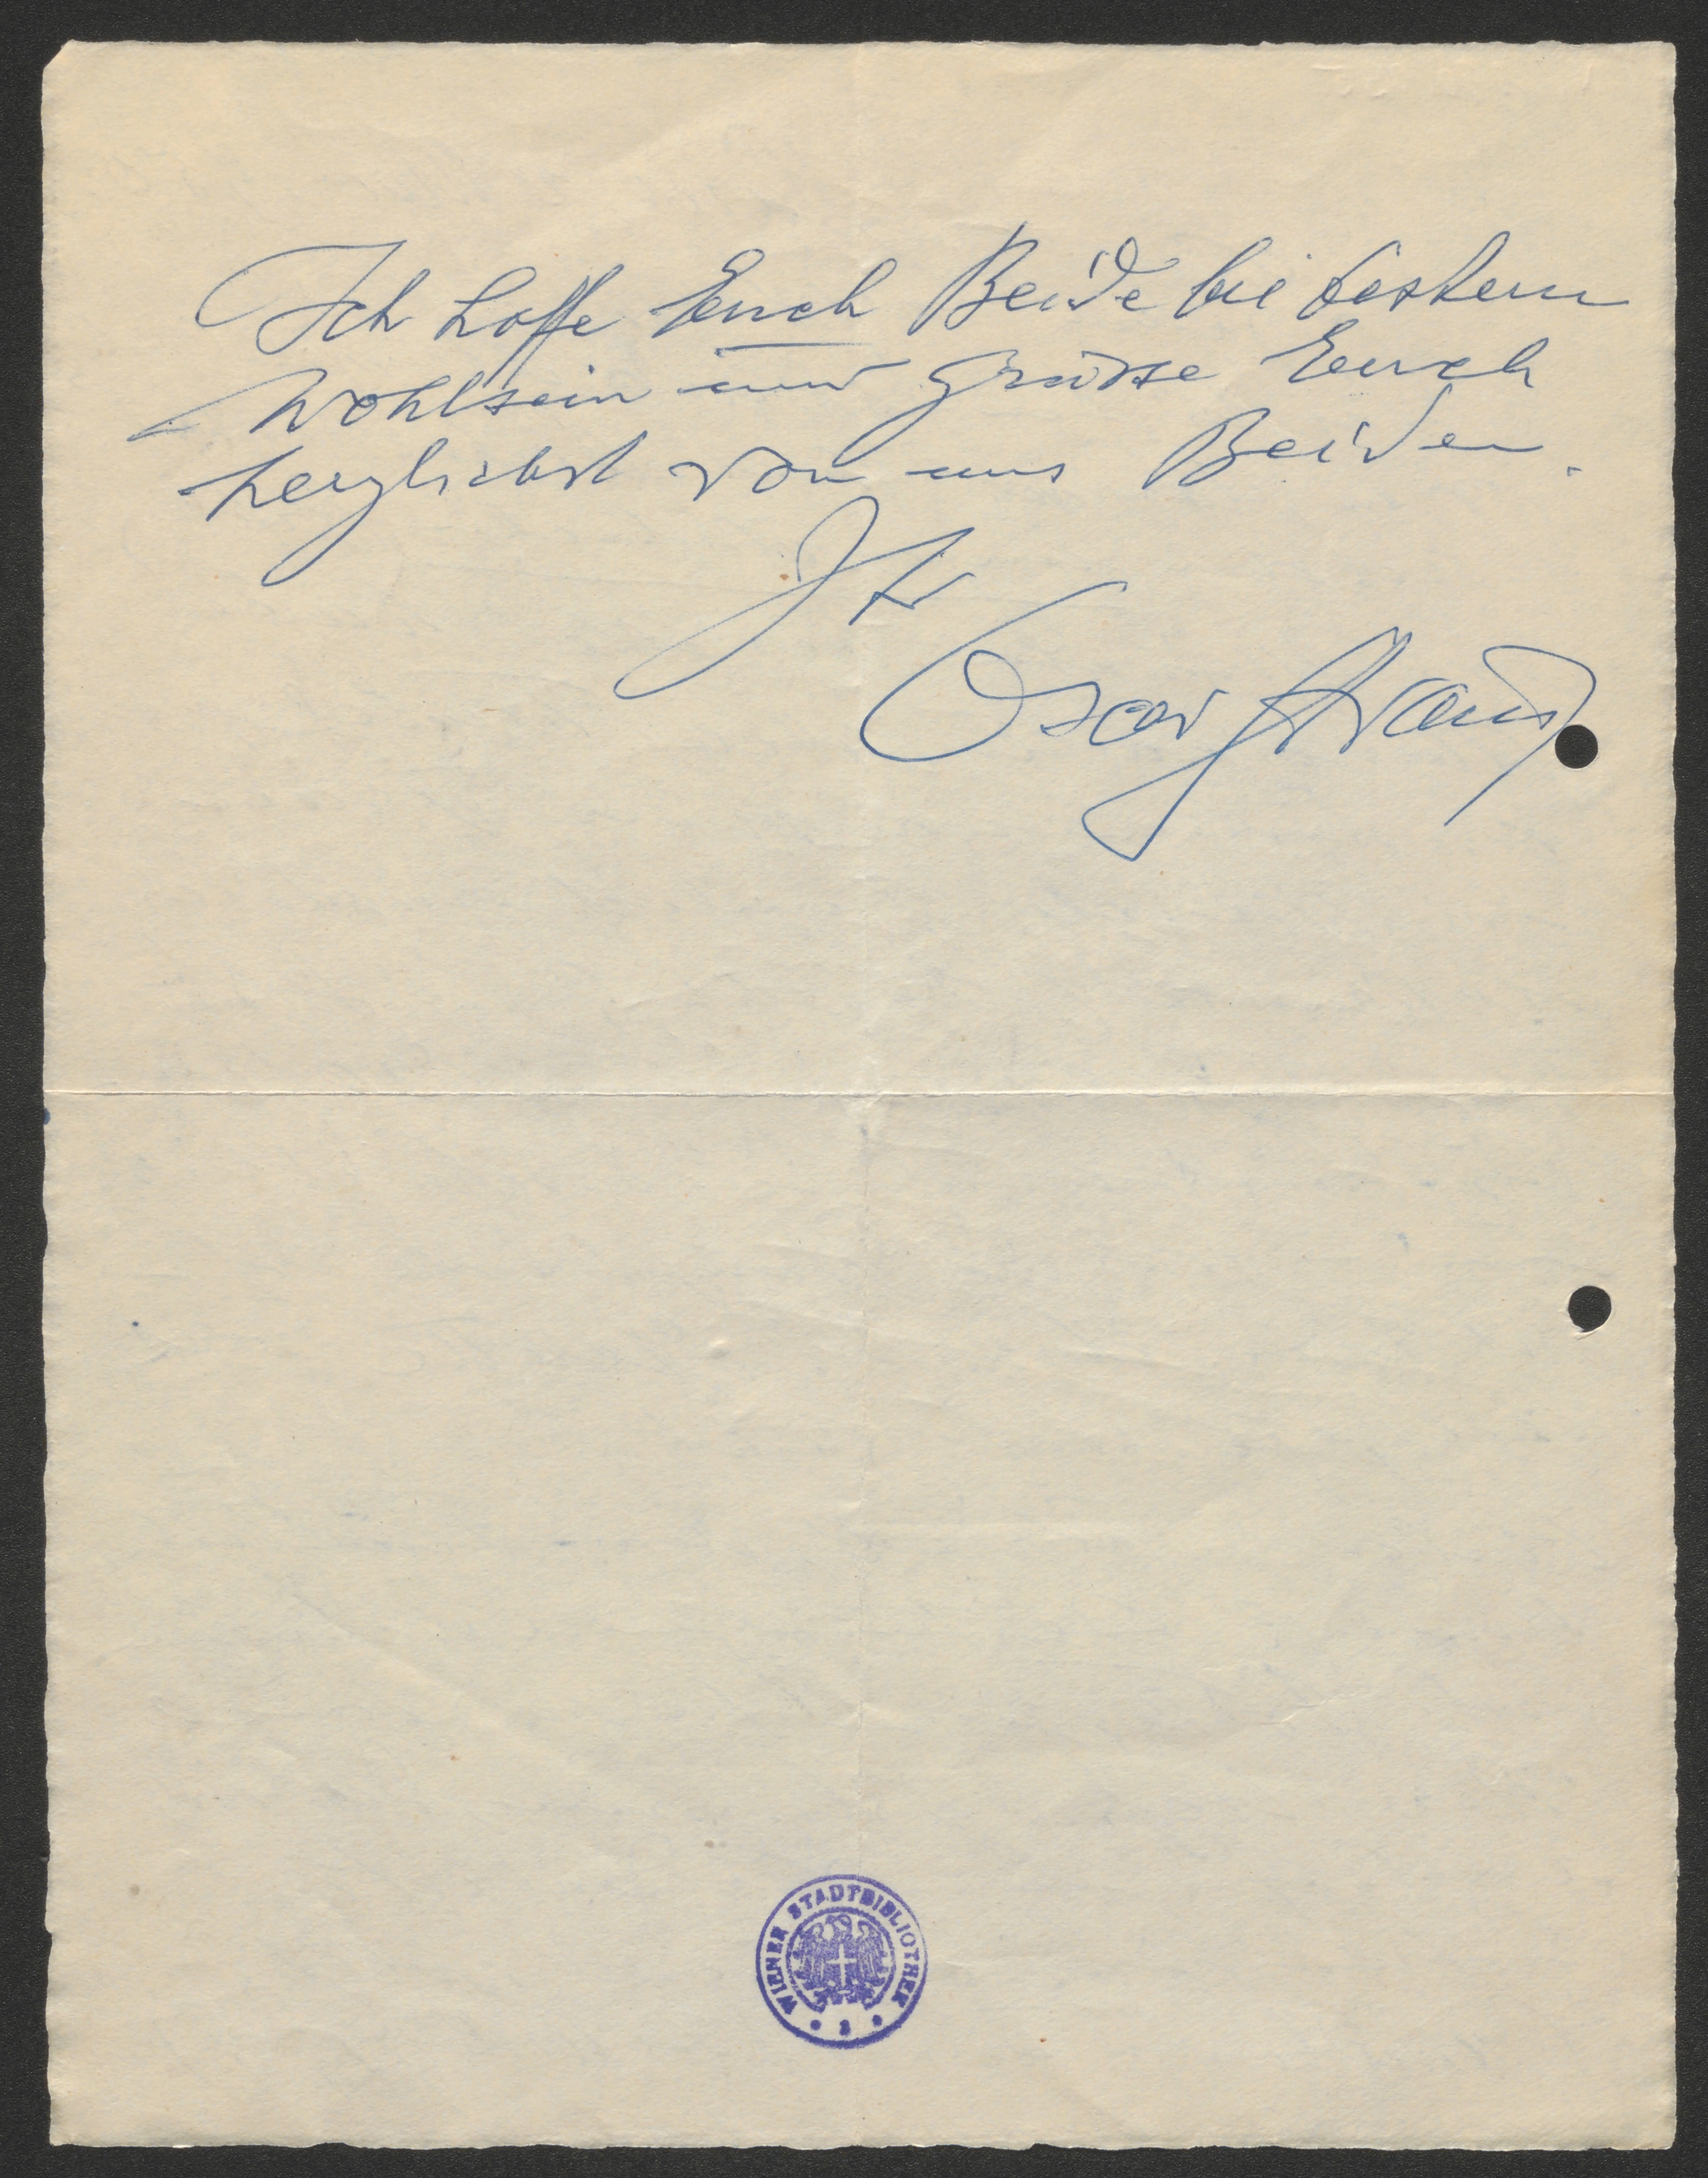 Ich hoffe Euch Beide bei bestem
Wohlsein und grüsse Euch
herzlichst von uns Beiden.
Ihr
Oscar Straus
WIENER STADTBIBLIOTHEK